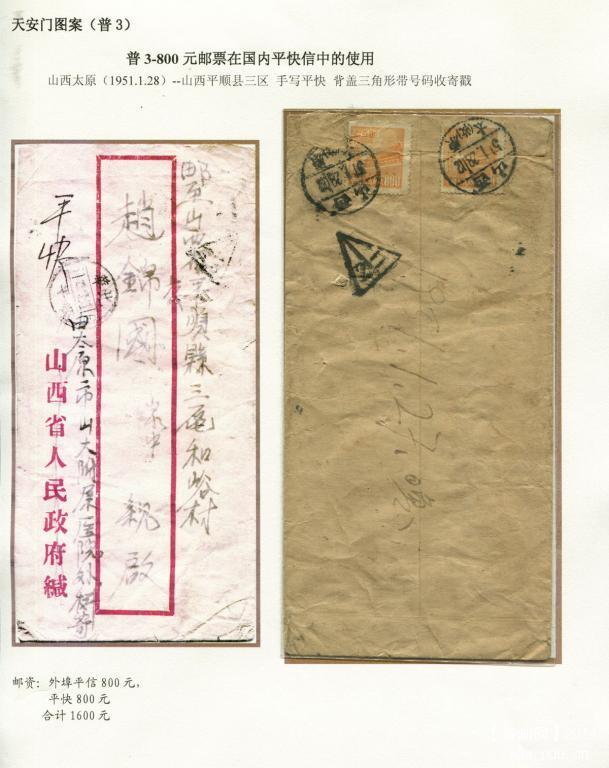 天安门图案（普 3）
普 3-800 元邮票在国内平快信中的使用
山西太原（1951.1.28）--山西平顺县三区 手写平快 背盖三角形带号码收寄戳
邮山
順縣三区和峪村
趙錦國
親啟
平快
由太原市山大附属医院外科寄
山西省人民政府緘
山西
山西
800
邮资：外埠平信 800 元，
平快 800 元
合计 1600 元